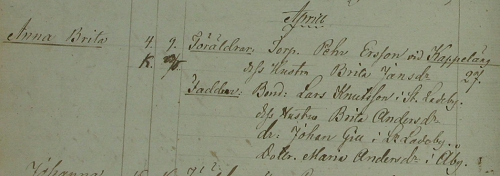 April
Anna Brita 4. 9. Föräldrar: Torp. Pehr Ersson vid Kappeläng
dess Hustru Brita Jansdr 27.
Faddrar: Bond: Lars Knutsson i St. Ladeby.
dess Hustru Brita Andersdr
dr: Johan Gill i L. Ladeby.
Doter. Maria Andersdr i Åby.
Johanna